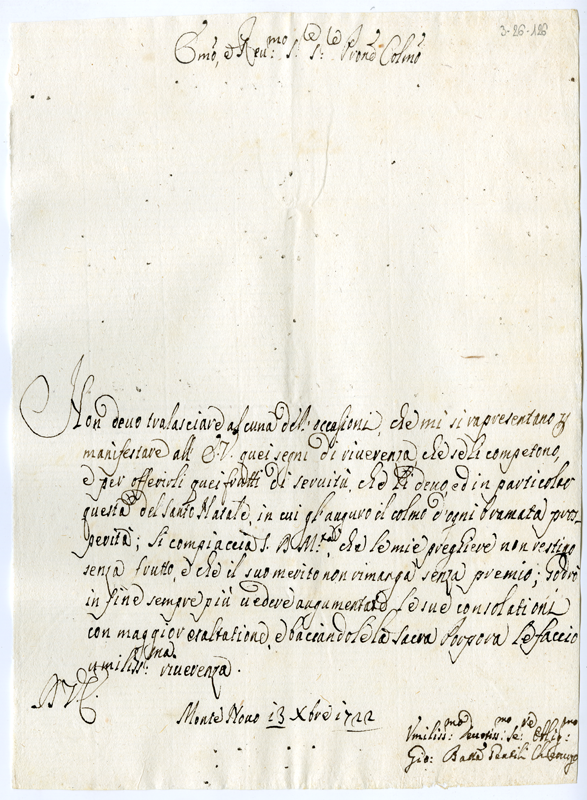 3-26-126
Emo, e Reu:mo S.e S.e Pron Colmo
Non deuo tralasciare alcuna del: occasioni, che mi si rapresentano p
manifestare all' E. V. quei segni di riuerenza che se li competono,
e per offerirli quei frutti di seruitù, che li deuo, ed in particolar
questa del Santo Natale, in cui gl'auguro el colmo d'ogni bramata pros
perità; Si compiaccia S. D. M.tà, che le mie pregliere non restino
senza frutto, e che il suo merito non rimanga senza premio; Godrò
in fine sempre più uedere augumentate le sue consolationi
con maggior esaltatione, e bacciandole la Sacra Porpora le faccio
umiliss:ma riuerenza.
D V E
Monte Nouo 13 Xbre 1722
Vmiliss:mo Deuotiss:mo Se:re Oblig:mo
Gio: Batta Gentili